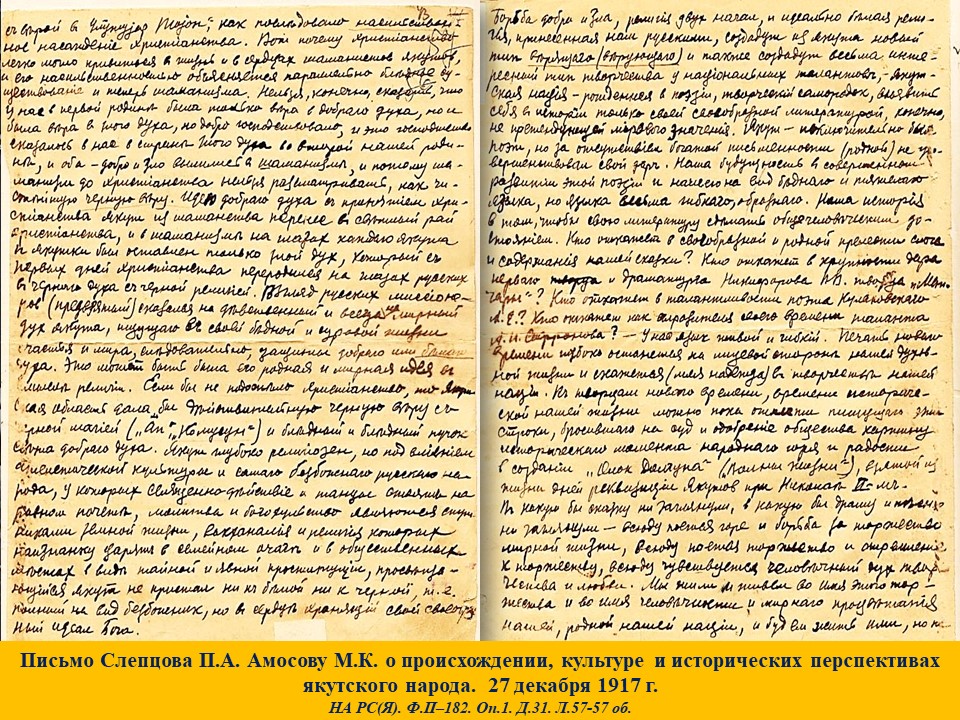 съ верой в Улукуjар Тоjон; как последовало насильствен-
ное насаждение христианства. Вот почему христианство
легко могло привиться в жизни и в сердцах шаманистов якутов,
и его насильственностью объясняется параллельно бывшее су-
ществование и теперь шаманизма. Нельзя, конечно, сказать, что
у нас в первой родине была только вера в доброго духа, но и
была вера в злого духа, но добро господствовало, и это господство
сказалось в нас в сторону злого духа во второй нашей роди-
не, и оба - добро и зло слились в шаманизм, и потому ша-
манизм до христианства нельзя рассматривать, как чи-
стильную черную веру. Идею доброго духа с принятием хри-
стианства якут из шаманства перенес в светлый рай
христианства, и в шаманизме на глазах каждого якута
и якутки был оставлен только злой дух, который съ
первых дней христианства переродился на глазах русских
в чернаго духа с черной религией. Взгляд русских миссионе-
ров (предвзятый) сказался на девственный и мирный
дух якута, ищущаго в своей бедной и суровой жизни
счастья и мира, следовательно, защиты добраго или белаго
духа. Это может быть была его родная и мирная идея в
смысле религии. Если бы не подоспело христианство, то якут-
ская область дала бы действительную черную веру съ
черной магией и бледный и бледный пучок
света доброго духа. Якут глубоко религиозен, но под влиянием
культуры и самаго безбожнаго русскаго на-
рода, у которых священнодействие и танцы стоят на
равном почете, молитва и богохульство являются спут-
никами земной жизни, вакханалия и религия которых
наизнанку царят в семейном очаге и в общественных
местах в виде тайной и явной проституции, просвещаю-
щийся якут не пристал ни к белой ни к черной, т.е.
полный на вид безбожник, но в сердце хранящий свой своеобраз-
ный идеал Бога.
Борьба добра и зла, религия двух начал, и идеально белая рели-
гия, принесенная нам русскими, создадут из якута новый
тип верящаго (верующаго) и также создадут весьма инте-
ресный тип творчества у национальных талантов,- якут-
ская нация - рожденная в поэзии, творческий самородок, выявит
себя в истории только своей своеобразной литературой, конечно,
не претендующей мирового значения. Якут - исключительно был
поэт, но за отсутствием богатой письменности (родной) не усо-
вершенствовал свой дар. Наша будущность в совершенном
развитии этой поэзии и нашего на вид беднаго и тяжелаго
языка, но языка весьма гибкаго, образнаго. Наша история
в том, чтобы свою литературу сделать общечеловеческим до-
стоянием. Кто откажет в своеобразной и родной прелести слога
и содержания нашей сказки? Кто откажет в крупности дара
перваго драматурга Никифорова В.В. творца „Ман-
чары"? Кто откажет в талантливости поэта Кулаковскаго
А.Е.? Кто откажет как выразителя своего времени таланта
А.И. Софронова? - У нас язык живой и гибкий. Печать новаго
времени глубоко останется на лицевой стороне нашей духов-
ной жизни и скажется (моя надежда) в творчестве нашей
нации. К творцам новаго времени, времени историче-
ской нашей жизни можно пока отнести пишущаго эти
строки, бросившаго на суд и одобрение общества картину
историческаго момента народнаго горя и радости
в создании („Волны жизни"), взятой из
жизни дней реквизиции якутов при Николае II-мъ.
В какую бы сказку ни заглянули, в какую бы драму и поэзию
ни заглянули - всюду поется горе и борьба за торжество
мирной жизни, всюду поется торжество и стремление
к торжеству, всюду чувствуется человечный дух твор-
чества и любви. Мы жили и живем во имя этого тор-
жества и во имя человечности и мирнаго продолжения
нашей, родной нашей нации, и будем жить ими, но
Письмо Слепцова П.А. Амосову М.К. о происхождении, культуре и исторических перспективах
якутского народа. 27 декабря 1917 г.
НА РС(Я). Ф.П–182. Оп.1. Д.31. Л.57-57 об.